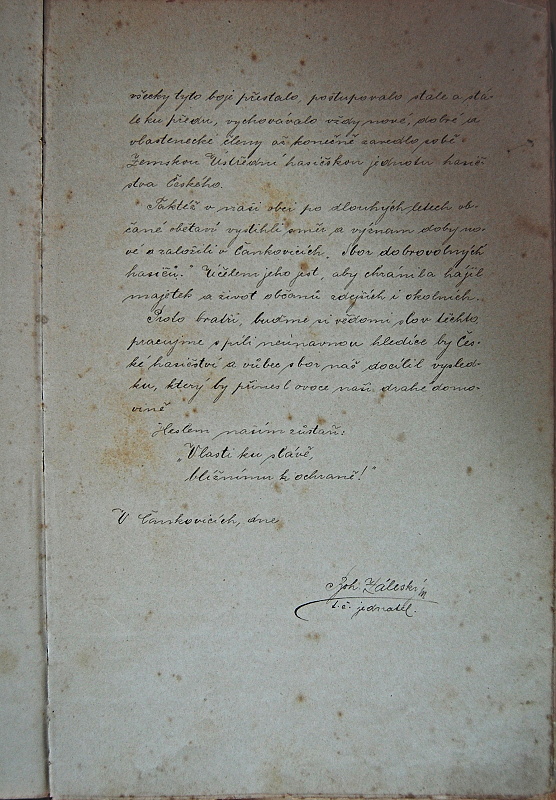 všecky tyto boje přestalo, postupovalo stále a stá-
le ku předu, vychovávalo vždy nové, dobré a
vlastenecké členy až konečně zavedlo sobě
Zemskou Ústřední hasičskou jednotu hasič-
stva Českého.
Taktéž v naší obci po dlouhých letech ob-
čané obětaví vystihli směr a význam doby no-
vé a založili v Čankovicích, „Sbor dobrovolných
hasičů." Účelem jeho jest, aby chránil a hájil
majetek a život občanů zdejších i okolních.
Proto bratři, buďme si vědomi slov těchto,
pracujme s pílí neúnavnou hledíce by Čes-
ké hasičství a vůbec sbor náš docílil výsled-
ku, který by přinesl ovoce naší drahé domo-
vině
Heslem naším zůstaň:
„Vlasti ku slávě,
bližnímu k ochraně!"
V Čankovicích, dne
Záleski
t. č. jednatel.